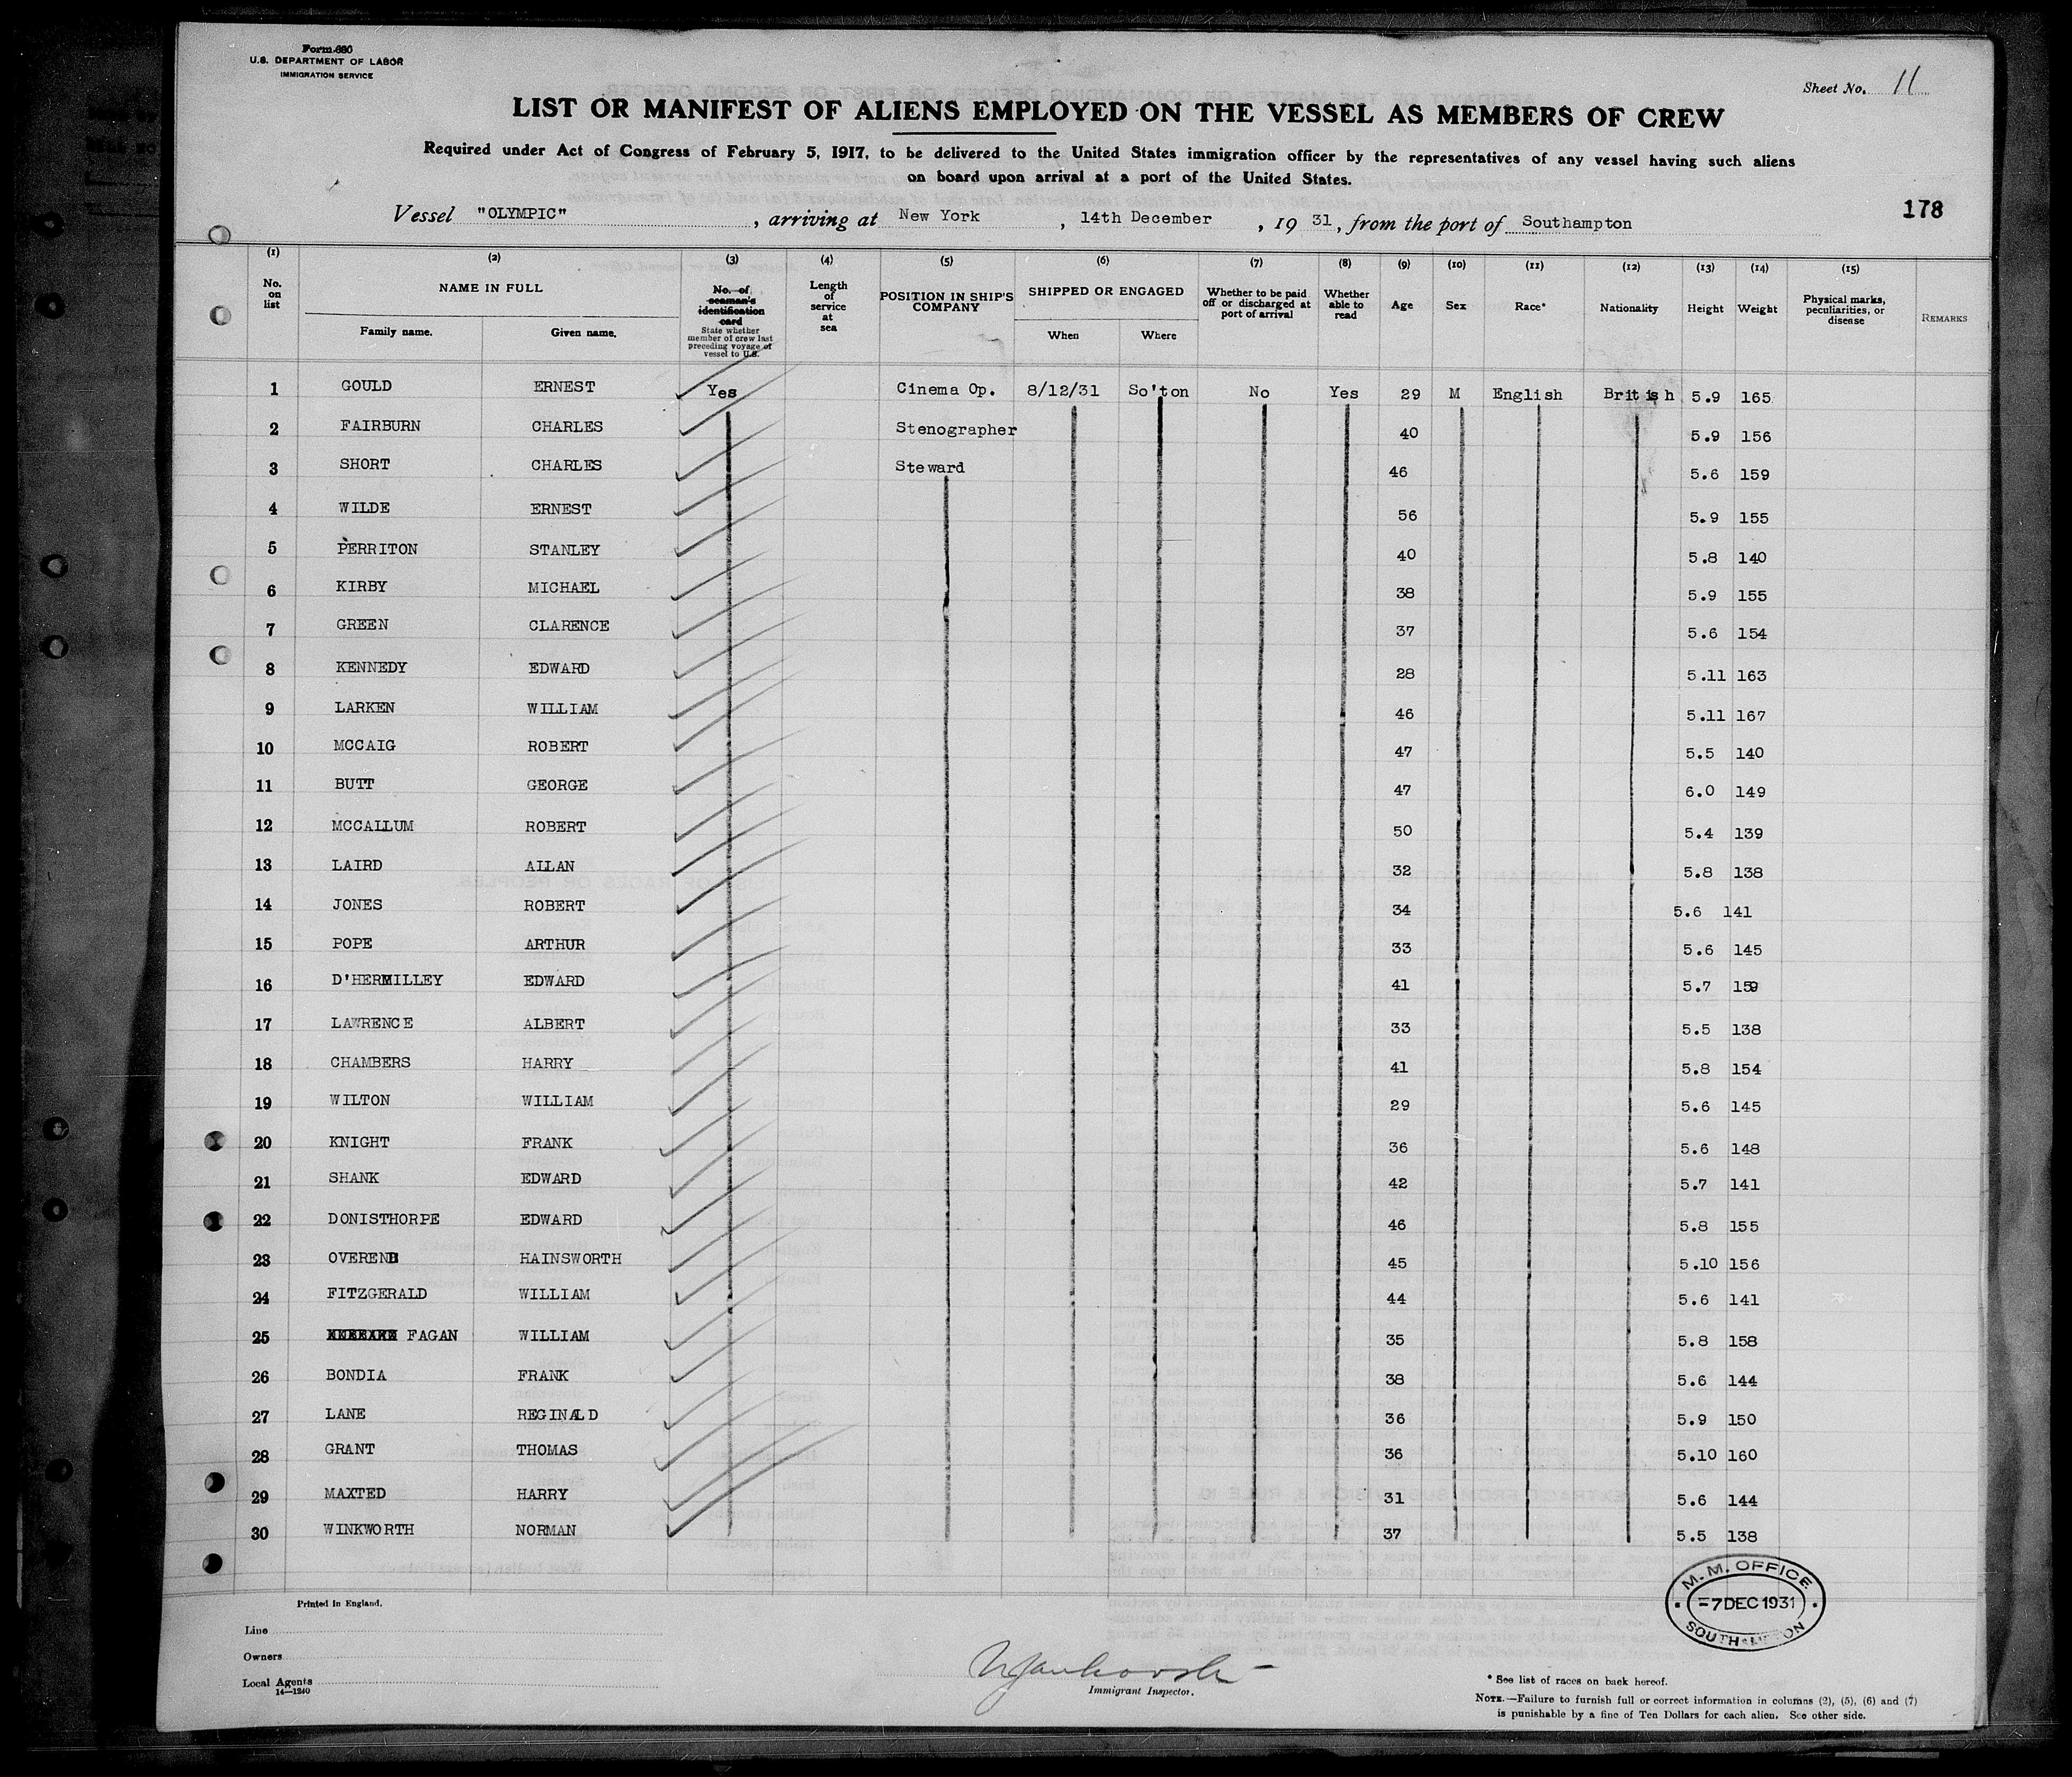 Form 680
U.S. DEPARTMENT OF LABOR
IMMIGRATION SERVICE
Sheet No. 11
LIST OR MANIFEST OF ALIENS EMPLOYED ON THE VESSEL AS MEMBERS OF CREW
Required under Act of Congress of February 5, 1917, to be delivered to the United States immigration officer by the representatives of any vessel having such aliens
on board upon arrival at a port of the United States.
178
Vessel "OLYMPIC", arriving at New York, 14th December, 19 31, from the port of Southampton
(1) (2) (3) (4) (5) (6) (7) (8) (9) (10) (11) (12) (13) (14) (15)
No. on list
NAME IN FULL
Family name. Given name.
No. of seaman's identification card
State whether member of crew last preceding voyage of vessel to U.S.
Length of service at sea
POSITION IN SHIP'S COMPANY
SHIPPED OR ENGAGED
When Where
Whether to be paid off or discharged at port of arrival
Whether able to read
Age
Sex
Race*
Nationality
Height
Weight
Physical marks, peculiarities, or disease
REMARKS
1 GOULD ERNEST Yes Cinema Op. 8/12/31 So'ton No Yes 29 M English British 5.9 165
2 FAIRBURN CHARLES Stenographer 40 5.9 156
3 SHORT CHARLES Steward 46 5.6 159
4 WILDE ERNEST 56 5.9 155
5 PERRITON STANLEY 40 5.8 140
6 KIRBY MICHAEL 38 5.9 155
7 GREEN CLARENCE 37 5.6 154
8 KENNEDY EDWARD 28 5.11 163
9 LARKEN WILLIAM 46 5.11 167
10 MCCAIG ROBERT 47 5.5 140
11 BUTT GEORGE 47 6.0 149
12 MCCALLUM ROBERT 50 5.4 139
13 LAIRD ALLAN 32 5.8 138
14 JONES ROBERT 34 5.6 141
15 POPE ARTHUR 33 5.6 145
16 D'HERMILLEY EDWARD 41 5.7 159
17 LAWRENCE ALBERT 33 5.5 138
18 CHAMBERS HARRY 41 5.8 154
19 WILTON WILLIAM 29 5.6 145
20 KNIGHT FRANK 36 5.6 148
21 SHANK EDWARD 42 5.7 141
22 DONISTHORPE EDWARD 46 5.8 155
23 OVEREND HAINSWORTH 45 5.10 156
24 FITZGERALD WILLIAM 44 5.6 141
25 FAGAN WILLIAM 35 5.8 158
26 BONDIA FRANK 38 5.6 144
27 LANE REGINALD 36 5.9 150
28 GRANT THOMAS 36 5.10 160
29 MAXTED HARRY 31 5.6 144
30 WINKWORTH NORMAN 37 5.5 138
M. M. OFFICE
-7 DEC 1931
SOUTHAMPTON
Printed in England.
Line
Owners
Local Agents
14—1240
Immigrant Inspector.
* See list of races on back hereof.
NOTE.—Failure to furnish full or correct information in columns (2), (5), (6) and (7)
is punishable by a fine of Ten Dollars for each alien. See other side.